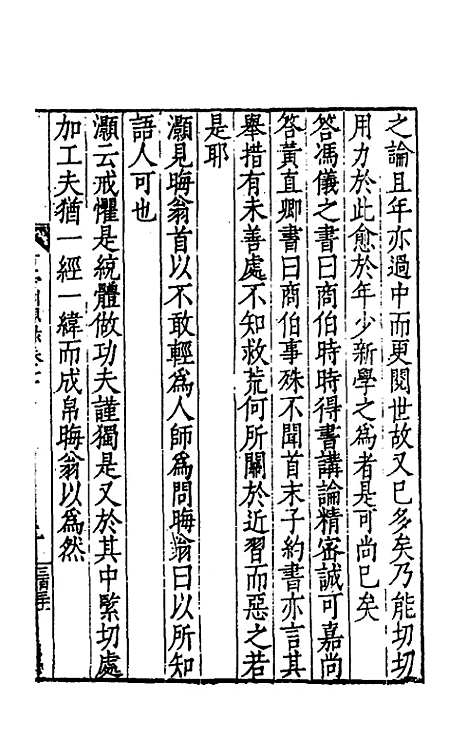 之論且年亦過中而更閱世故又已多矣乃能切切
用力於此愈於年少新學之為者是可尚已矣
答馮儀之書曰商伯時時得書講論精密誠可嘉尚
答黃直卿書曰商伯事殊不聞首末子約書亦言其
舉措有未善處不知救荒何所關於近習而惡之若
是耶
灝見晦翁首以不敢輕為人師為問晦翁曰以所知
語人可也
灝云戒懼是統體做功夫謹獨是又於其中緊切處
加工夫猶一經一緯而成帛晦翁以為然